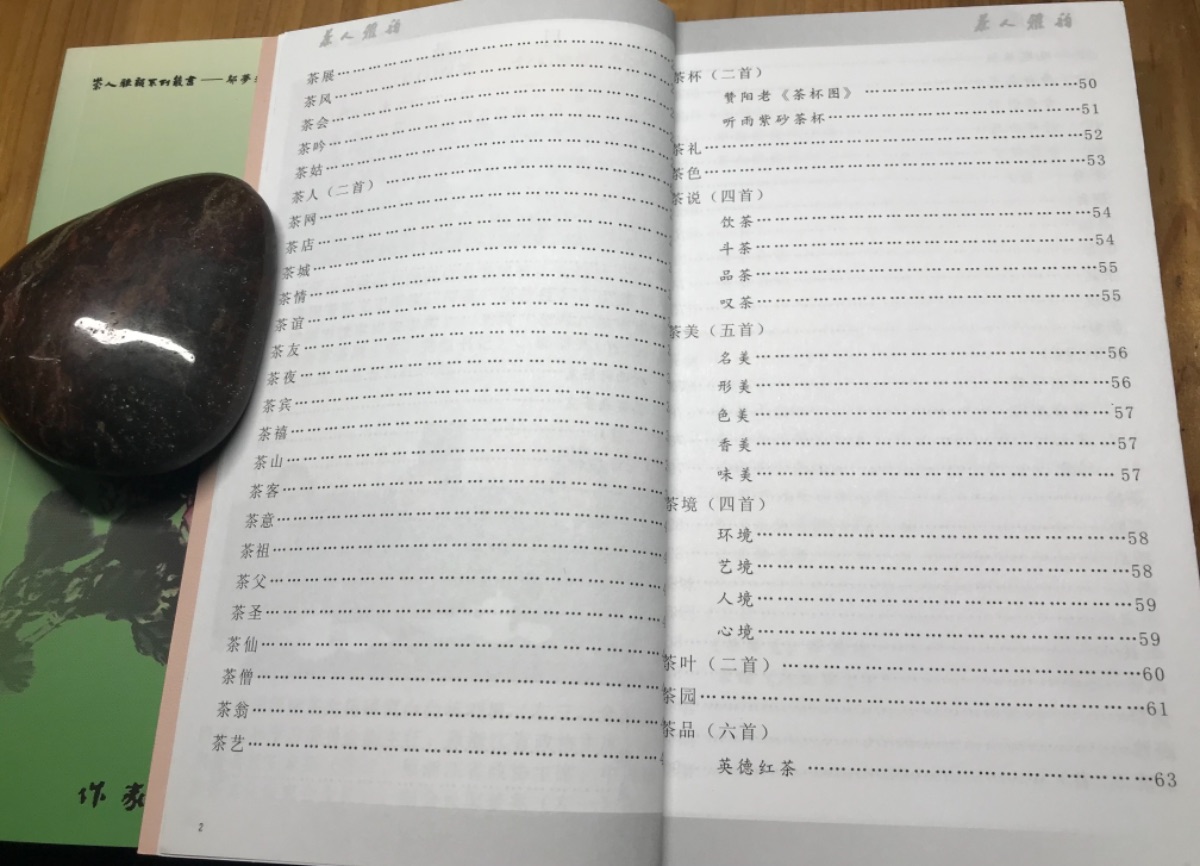 茶人雅韵
茶展………………………………………………
茶风………………………………………………
茶会………………………………………………
茶吟………………………………………………
茶姑………………………………………………
茶人（二首）………………………………………
茶网………………………………………………
茶店………………………………………………
茶城………………………………………………
茶情………………………………………………
茶谊………………………………………………
茶友………………………………………………
茶夜………………………………………………
茶宾………………………………………………
茶禧………………………………………………
茶山………………………………………………
茶客………………………………………………
茶意………………………………………………
茶祖………………………………………………
茶父………………………………………………
茶圣………………………………………………
茶仙………………………………………………
茶僧………………………………………………
茶翁………………………………………………
茶艺………………………………………………
2
茶人雅韵
茶杯（二首）
赞阳老《茶杯图》………………………………50
听雨紫砂茶杯……………………………………51
茶礼………………………………………………52
茶色………………………………………………53
茶说（四首）
饮茶………………………………………………54
斗茶………………………………………………54
品茶………………………………………………55
叹茶………………………………………………55
茶美（五首）
名美………………………………………………56
形美………………………………………………56
色美………………………………………………57
香美………………………………………………57
味美………………………………………………57
茶境（四首）
环境………………………………………………58
艺境………………………………………………58
人境………………………………………………59
心境………………………………………………59
茶叶（二首）……………………………………60
茶园………………………………………………61
茶品（六首）
英德红茶…………………………………………63
作家